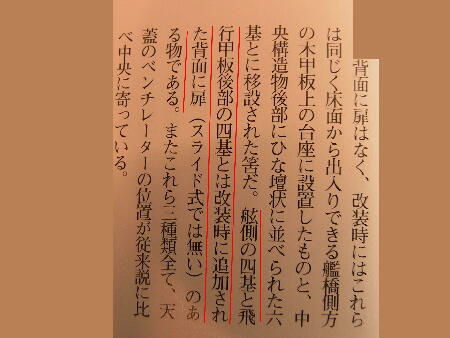 背面に扉はなく、改装時にはこれら
は同じく床面から出入りできる艦橋側方
の木甲板上の台座に設置したものと、中
央構造物後部にひな壇状に並べられた六
基とに移設された筈だ。舷側の四基と飛
行甲板後部の四基とは改装時に追加され
た背面に扉（スライド式では無い）のあ
る物である。またこれら三種類全て、天
蓋のベンチレーターの位置が従来説に比
べ中央に寄っている。